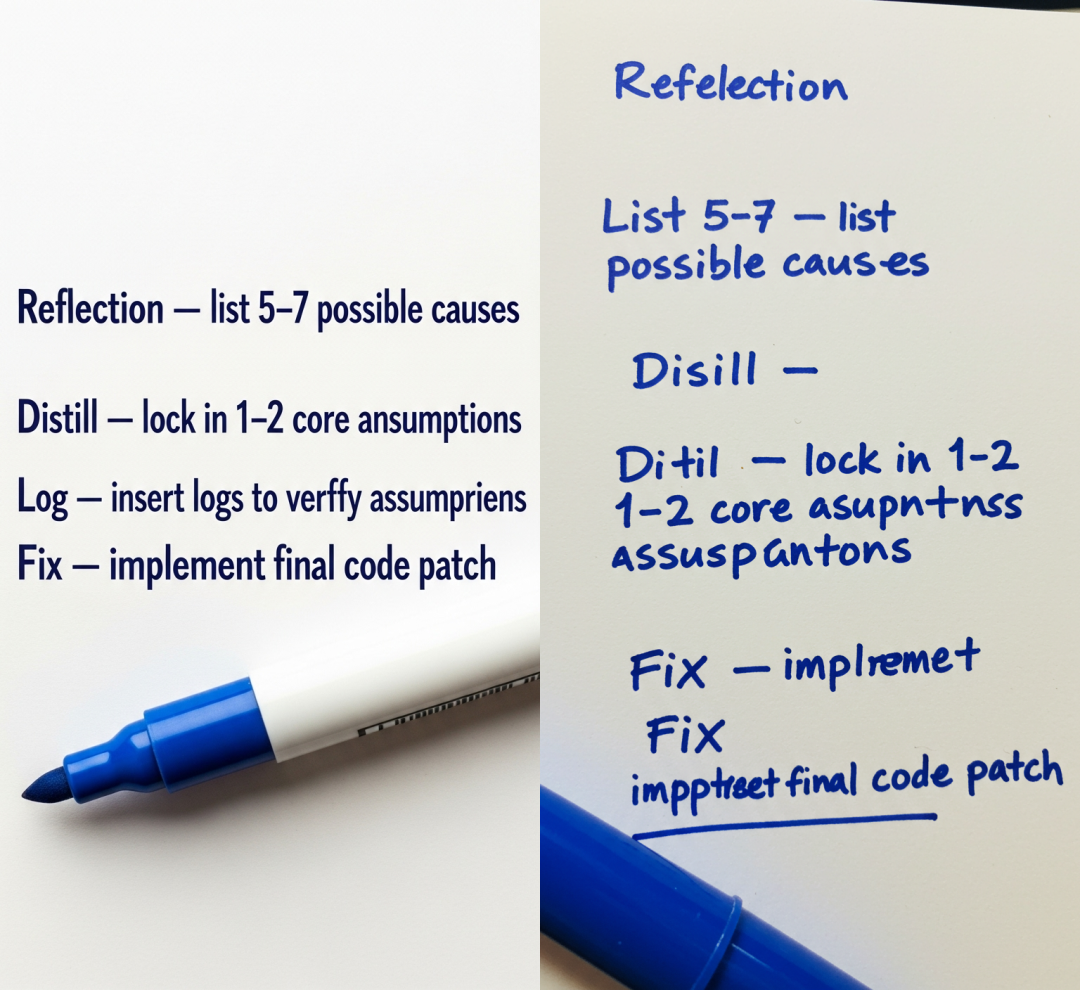 Reflection — list 5–7 possible causes
Distill — lock in 1–2 core ansumptions
Log — insert logs to verffy assumpriens
Fix — implement final code patch
Refelection
List 5-7 — list
possible causes
Disill —
Ditil — lock in 1-2
1-2 core asupntnss
assuspantons
Fix — implremet
Fix
final code patch